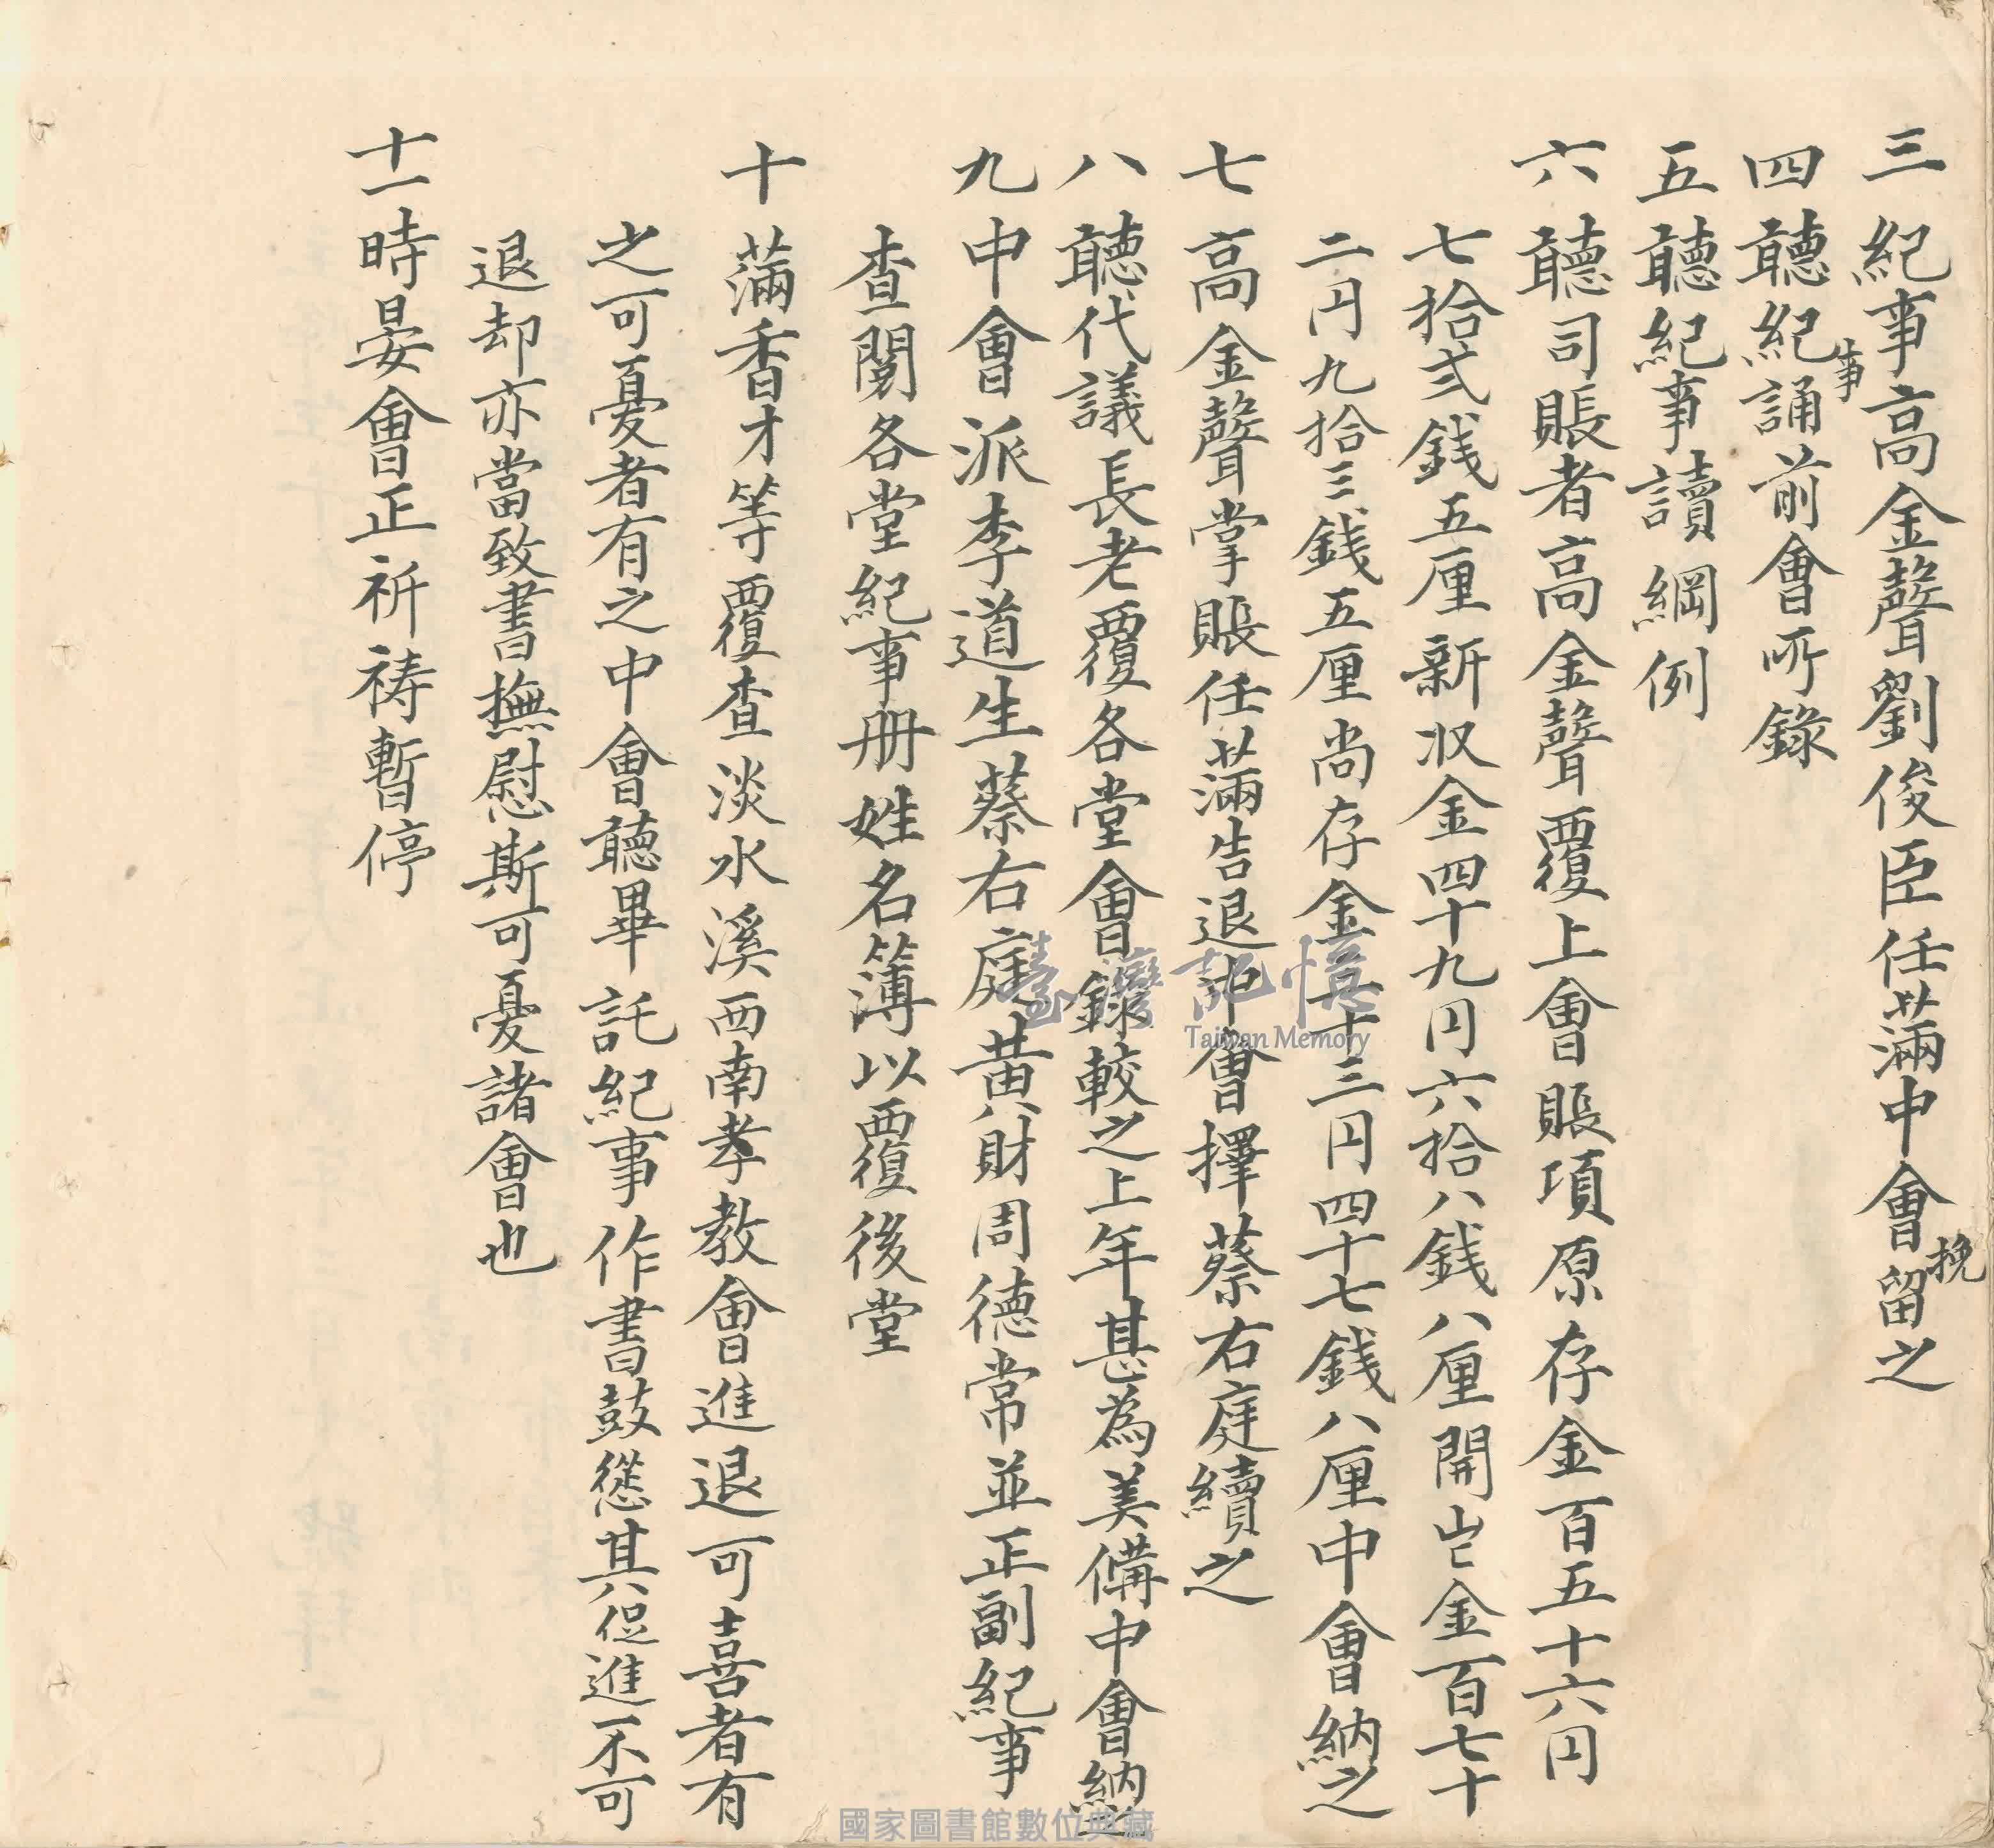 三 紀事高金聲劉俊臣任滿中會挽留之
四 聽紀事誦前會所錄
五 聽紀事讀綱例
六 聽司賬者高金聲覆上會賬項原存金百五十六円
七拾弍銭五厘新収金四十九円六拾八銭八厘開岀金百七十
二円九拾三銭五厘尚存金三十三円四十七銭八厘中會納之
七 高金聲掌賬任滿告退中會擇蔡右庭續之
八 聽代議長老覆各堂會錄較之上年甚為美備中會納之
九 中會派李道生蔡右庭黃財周德常並正副紀事
查閱各堂紀事册姓名簿以覆後堂
十 蒲香才等覆查淡水溪西南孝教會進退可喜者有
之可憂者有之中會聽畢託紀事作書鼓慫其促進不可
退却亦當致書撫慰斯可憂諸會也
十一 時晏會正祈祷暫停
臺灣記憶
Taiwan Memory
國家圖書館數位典藏